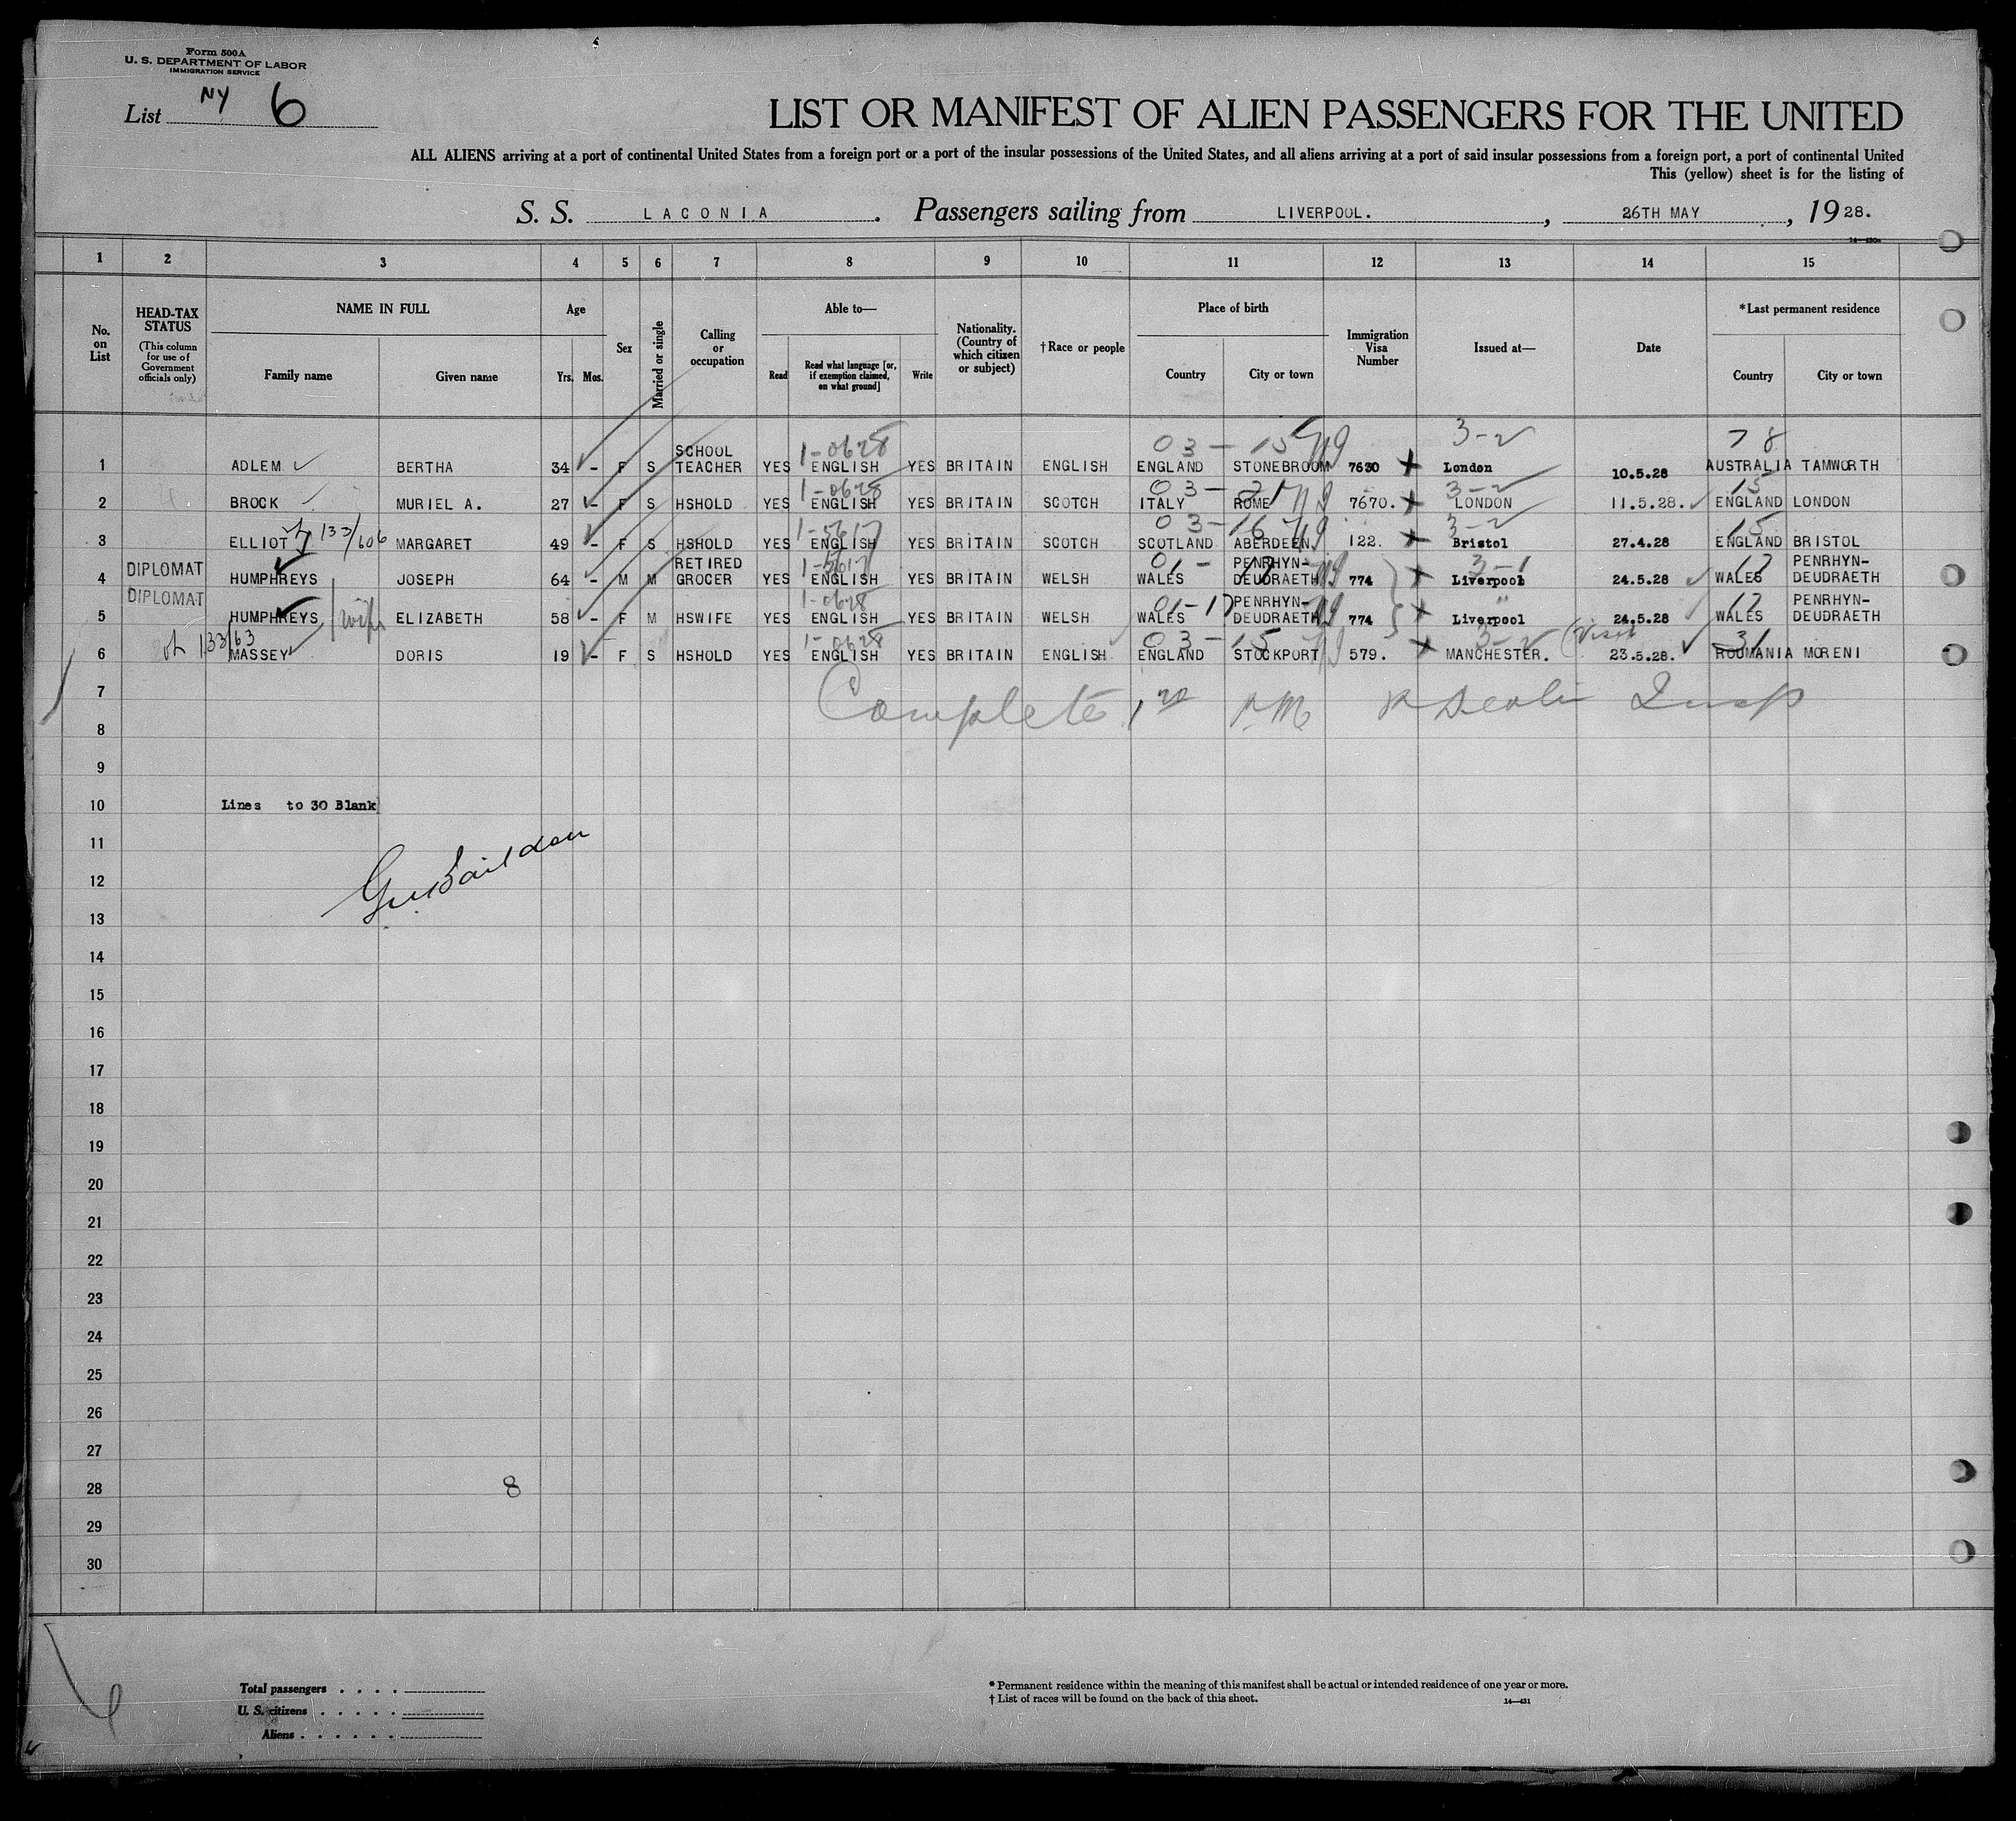 Form 500A
U. S. DEPARTMENT OF LABOR
IMMIGRATION SERVICE
List NY 6
LIST OR MANIFEST OF ALIEN PASSENGERS FOR THE UNITED
ALL ALIENS arriving at a port of continental United States from a foreign port or a port of the insular possessions of the United States, and all aliens arriving at a port of said insular possessions from a foreign port, a port of continental United
This (yellow) sheet is for the listing of
S. S. LACONIA. Passengers sailing from LIVERPOOL., 26TH MAY, 1928.
14—430a
1 2 3 4 5 6 7 8 9 10 11 12 13 14 15
No. on List
HEAD-TAX STATUS
(This column for use of Government officials only)
NAME IN FULL
Family name Given name
Age
Yrs. Mos.
Sex
Married or single
Calling or occupation
Able to—
Read Read what language [or, if exemption claimed, on what ground] Write
Nationality. (Country of which citizen or subject)
†Race or people
Place of birth
Country City or town
Immigration Visa Number
Issued at—
Date
*Last permanent residence
Country City or town
1-0628 03-15 3-2 78
1 ADLEM BERTHA 34 - F S SCHOOL TEACHER YES ENGLISH YES BRITAIN ENGLISH ENGLAND STONEBROOM 7630 London 10.5.28 AUSTRALIA TAMWORTH
1-0628 03-21 3-2 15
2 BROCK MURIEL A. 27 - F S HSHOLD YES ENGLISH YES BRITAIN SCOTCH ITALY ROME 7670. LONDON 11.5.28. ENGLAND LONDON
133/606 1-5617 03-16 3-2 15
3 ELLIOT MARGARET 49 - F S HSHOLD YES ENGLISH YES BRITAIN SCOTCH SCOTLAND ABERDEEN 122. Bristol 27.4.28 ENGLAND BRISTOL
1-5617 01- 3-1 17
4 DIPLOMAT HUMPHREYS JOSEPH 64 - M M RETIRED GROCER YES ENGLISH YES BRITAIN WELSH WALES PENRHYN-DEUDRAETH 774 Liverpool 24.5.28 WALES PENRHYN-DEUDRAETH
wife 1-0628 01-17 " 17
5 DIPLOMAT HUMPHREYS ELIZABETH 58 - F M HSWIFE YES ENGLISH YES BRITAIN WELSH WALES PENRHYN-DEUDRAETH 774 Liverpool 24.5.28 WALES PENRHYN-DEUDRAETH
133/63 1-0628 03-15 3-2 Visit 31
6 MASSEY DORIS 19 - F S HSHOLD YES ENGLISH YES BRITAIN ENGLISH ENGLAND STOCKPORT 579. MANCHESTER. 23.5.28. ROUMANIA MORENI
7 Complete
8
9
10 Lines to 30 Blank
11
12
13
14
15
16
17
18
19
20
21
22
23
24
25
26
27
28 8
29
30
Total passengers . . . .
U. S. citizens . . . . .
Aliens . . . . . .
* Permanent residence within the meaning of this manifest shall be actual or intended residence of one year or more.
† List of races will be found on the back of this sheet. 14—431